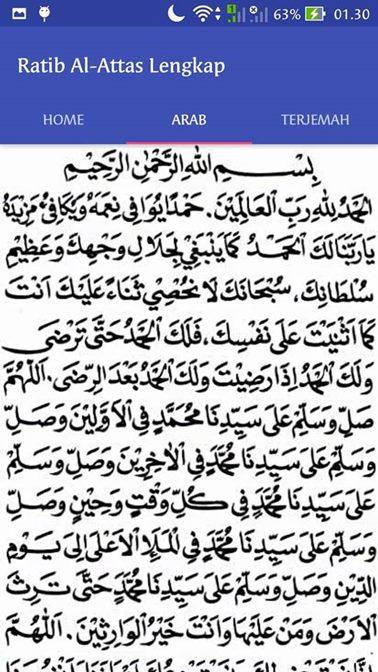 63% 01.30
Ratib Al-Attas Lengkap
HOME ARAB TERJEMAH
بِسْمِ اللهِ الرَّحْمٰنِ الرَّحِيْمِ
اَلْحَمْدُ لِلّٰهِ رَبِّ الْعَالَمِيْنَ. حَمْدًا يُوَافِى نِعَمَهُ وَيُكَافِئُ مَزِيْدَهُ
يَا رَبَّنَا لَكَ الْحَمْدُ كَمَا يَنْبَغِيْ لِجَلَالِ وَجْهِكَ وَعَظِيْمِ
سُلْطَانِكَ، سُبْحَانَكَ لَا نُحْصِيْ ثَنَاءً عَلَيْكَ اَنْتَ
كَمَا اَثْنَيْتَ عَلَى نَفْسِكَ، فَلَكَ الْحَمْدُ حَتَّى تَرْضَى
وَلَكَ الْحَمْدُ اِذَا رَضِيْتَ وَلَكَ الْحَمْدُ بَعْدَ الرِّضَى. اَللّٰهُمَّ
صَلِّ وَسَلِّمْ عَلَى سَيِّدِنَا مُحَمَّدٍ فِى الْاَوَّلِيْنَ وَصَلِّ
وَسَلِّمْ عَلَى سَيِّدِنَا مُحَمَّدٍ فِى الْاٰخِرِيْنَ وَصَلِّ وَسَلِّمْ
عَلَى سَيِّدِنَا مُحَمَّدٍ فِى كُلِّ وَقْتٍ وَحِيْنٍ وَصَلِّ
وَسَلِّمْ عَلَى سَيِّدِنَا مُحَمَّدٍ فِى الْمَلَاِ الْاَعْلَى اِلَى يَوْمِ
الدِّيْنِ وَصَلِّ وَسَلِّمْ عَلَى سَيِّدِنَا مُحَمَّدٍ حَتَّى تَرِثَ
الْاَرْضَ وَمَنْ عَلَيْهَا وَاَنْتَ خَيْرُ الْوَارِثِيْنَ. اَللّٰهُمَّ